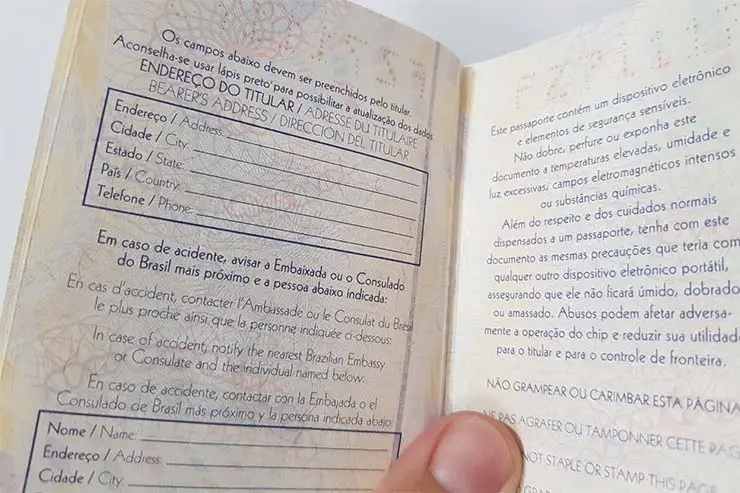 Os campos abaixo devem ser preenchidos pelo titular.
Aconselha-se usar lápis preto para possibilitar a atualização dos dados.
ENDEREÇO DO TITULAR / ADRESSE DU TITULAIRE
BEARER'S ADDRESS / DIRECCIÓN DEL TITULAR
Endereço / Address:
Cidade / City:
Estado / State:
País / Country:
Telefone / Phone:
Em caso de acidente, avisar a Embaixada ou o Consulado
do Brasil mais próximo e a pessoa abaixo indicada:
En cas d'accident, contacter l'Ambassade ou le Consulat du Bresil
le plus proche ainsi que la personne indiquée ci-dessous:
In case of accident, notify the nearest Brazilian Embassy
or Consulate and the individual named below:
En caso de accidente, contactar con la Embajada o el
Consulado de Brasil más próximo y la persona indicada abajo:
Nome / Name:
Endereço / Address:
Cidade / City:
Este passaporte contém um dispositivo eletrônico
e elementos de segurança sensíveis.
Não dobre, perfure ou exponha este
documento a temperaturas elevadas, umidade e
luz excessivas, campos eletromagnéticos intensos
ou substâncias químicas.
Além do respeito e dos cuidados normais
dispensados a um passaporte, tenha com este
documento as mesmas precauções que teria com
qualquer outro dispositivo eletrônico portátil,
assegurando que ele não ficará úmido, dobrado
ou amassado. Abusos podem afetar adversa-
mente a operação do chip e reduzir sua utilidade
para o titular e para o controle de fronteira.
NÃO GRAMPEAR OU CARIMBAR ESTA PÁGINA
NE PAS AGRAFER OU TAMPONNER CETTE PAG
NOT STAPLE OR STAMP THIS PAGE